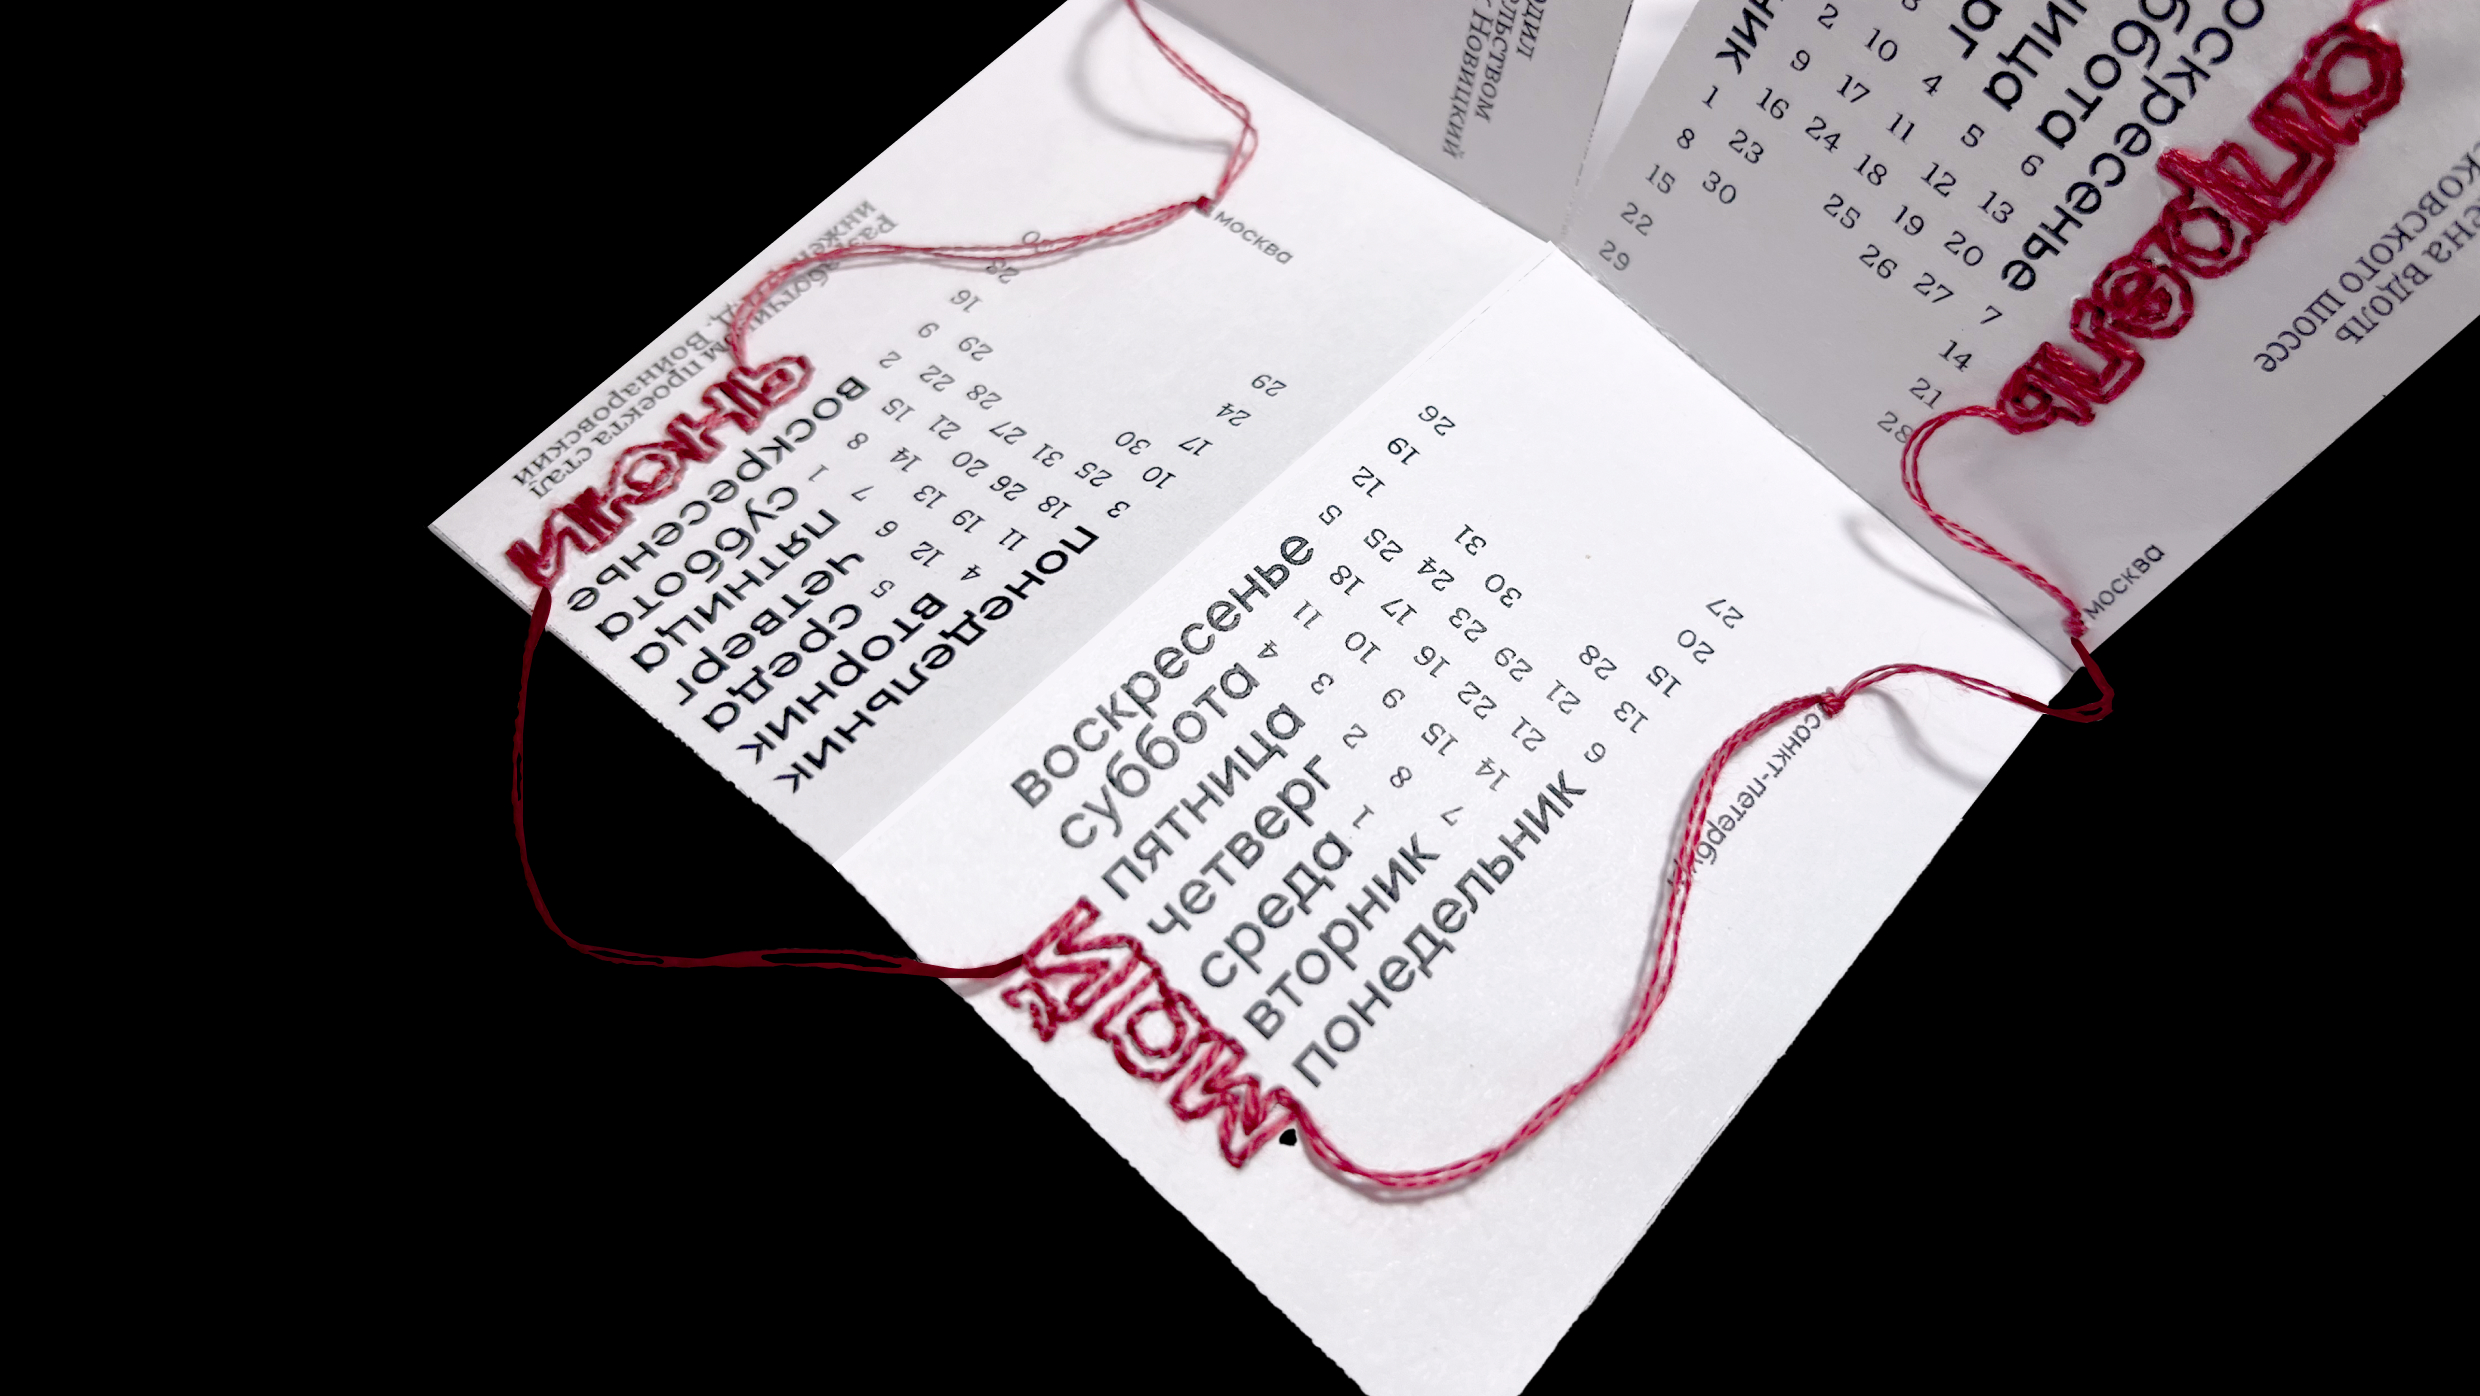 июнь
проекта стал
Войнаровский
воскресенье 2 9 16
суббота 1 8 15 22 29
пятница 7 14 21 28
четверг 6 13 20 27
среда 5 12 19 26 31
вторник 4 11 18 25 30
понедельник 3 10 17 24 29
москва
май
воскресенье 5 12 19 26
суббота 4 11 18 25
пятница 3 10 17 24 31
четверг 2 9 16 23 30
среда 1 8 15 22 29
вторник 7 14 21 21 28
понедельник 6 13 15 20 27
санкт-петербург
Новицкий
апрель
ник 1 8 15 22 29
2 9 16 23 30
3 10 17 24
рг 4 11 18 25
ница 5 12 19 26
бота 6 13 20 27
оскресенье 7 14 21 28
вдоль
ковского шоссе
москва